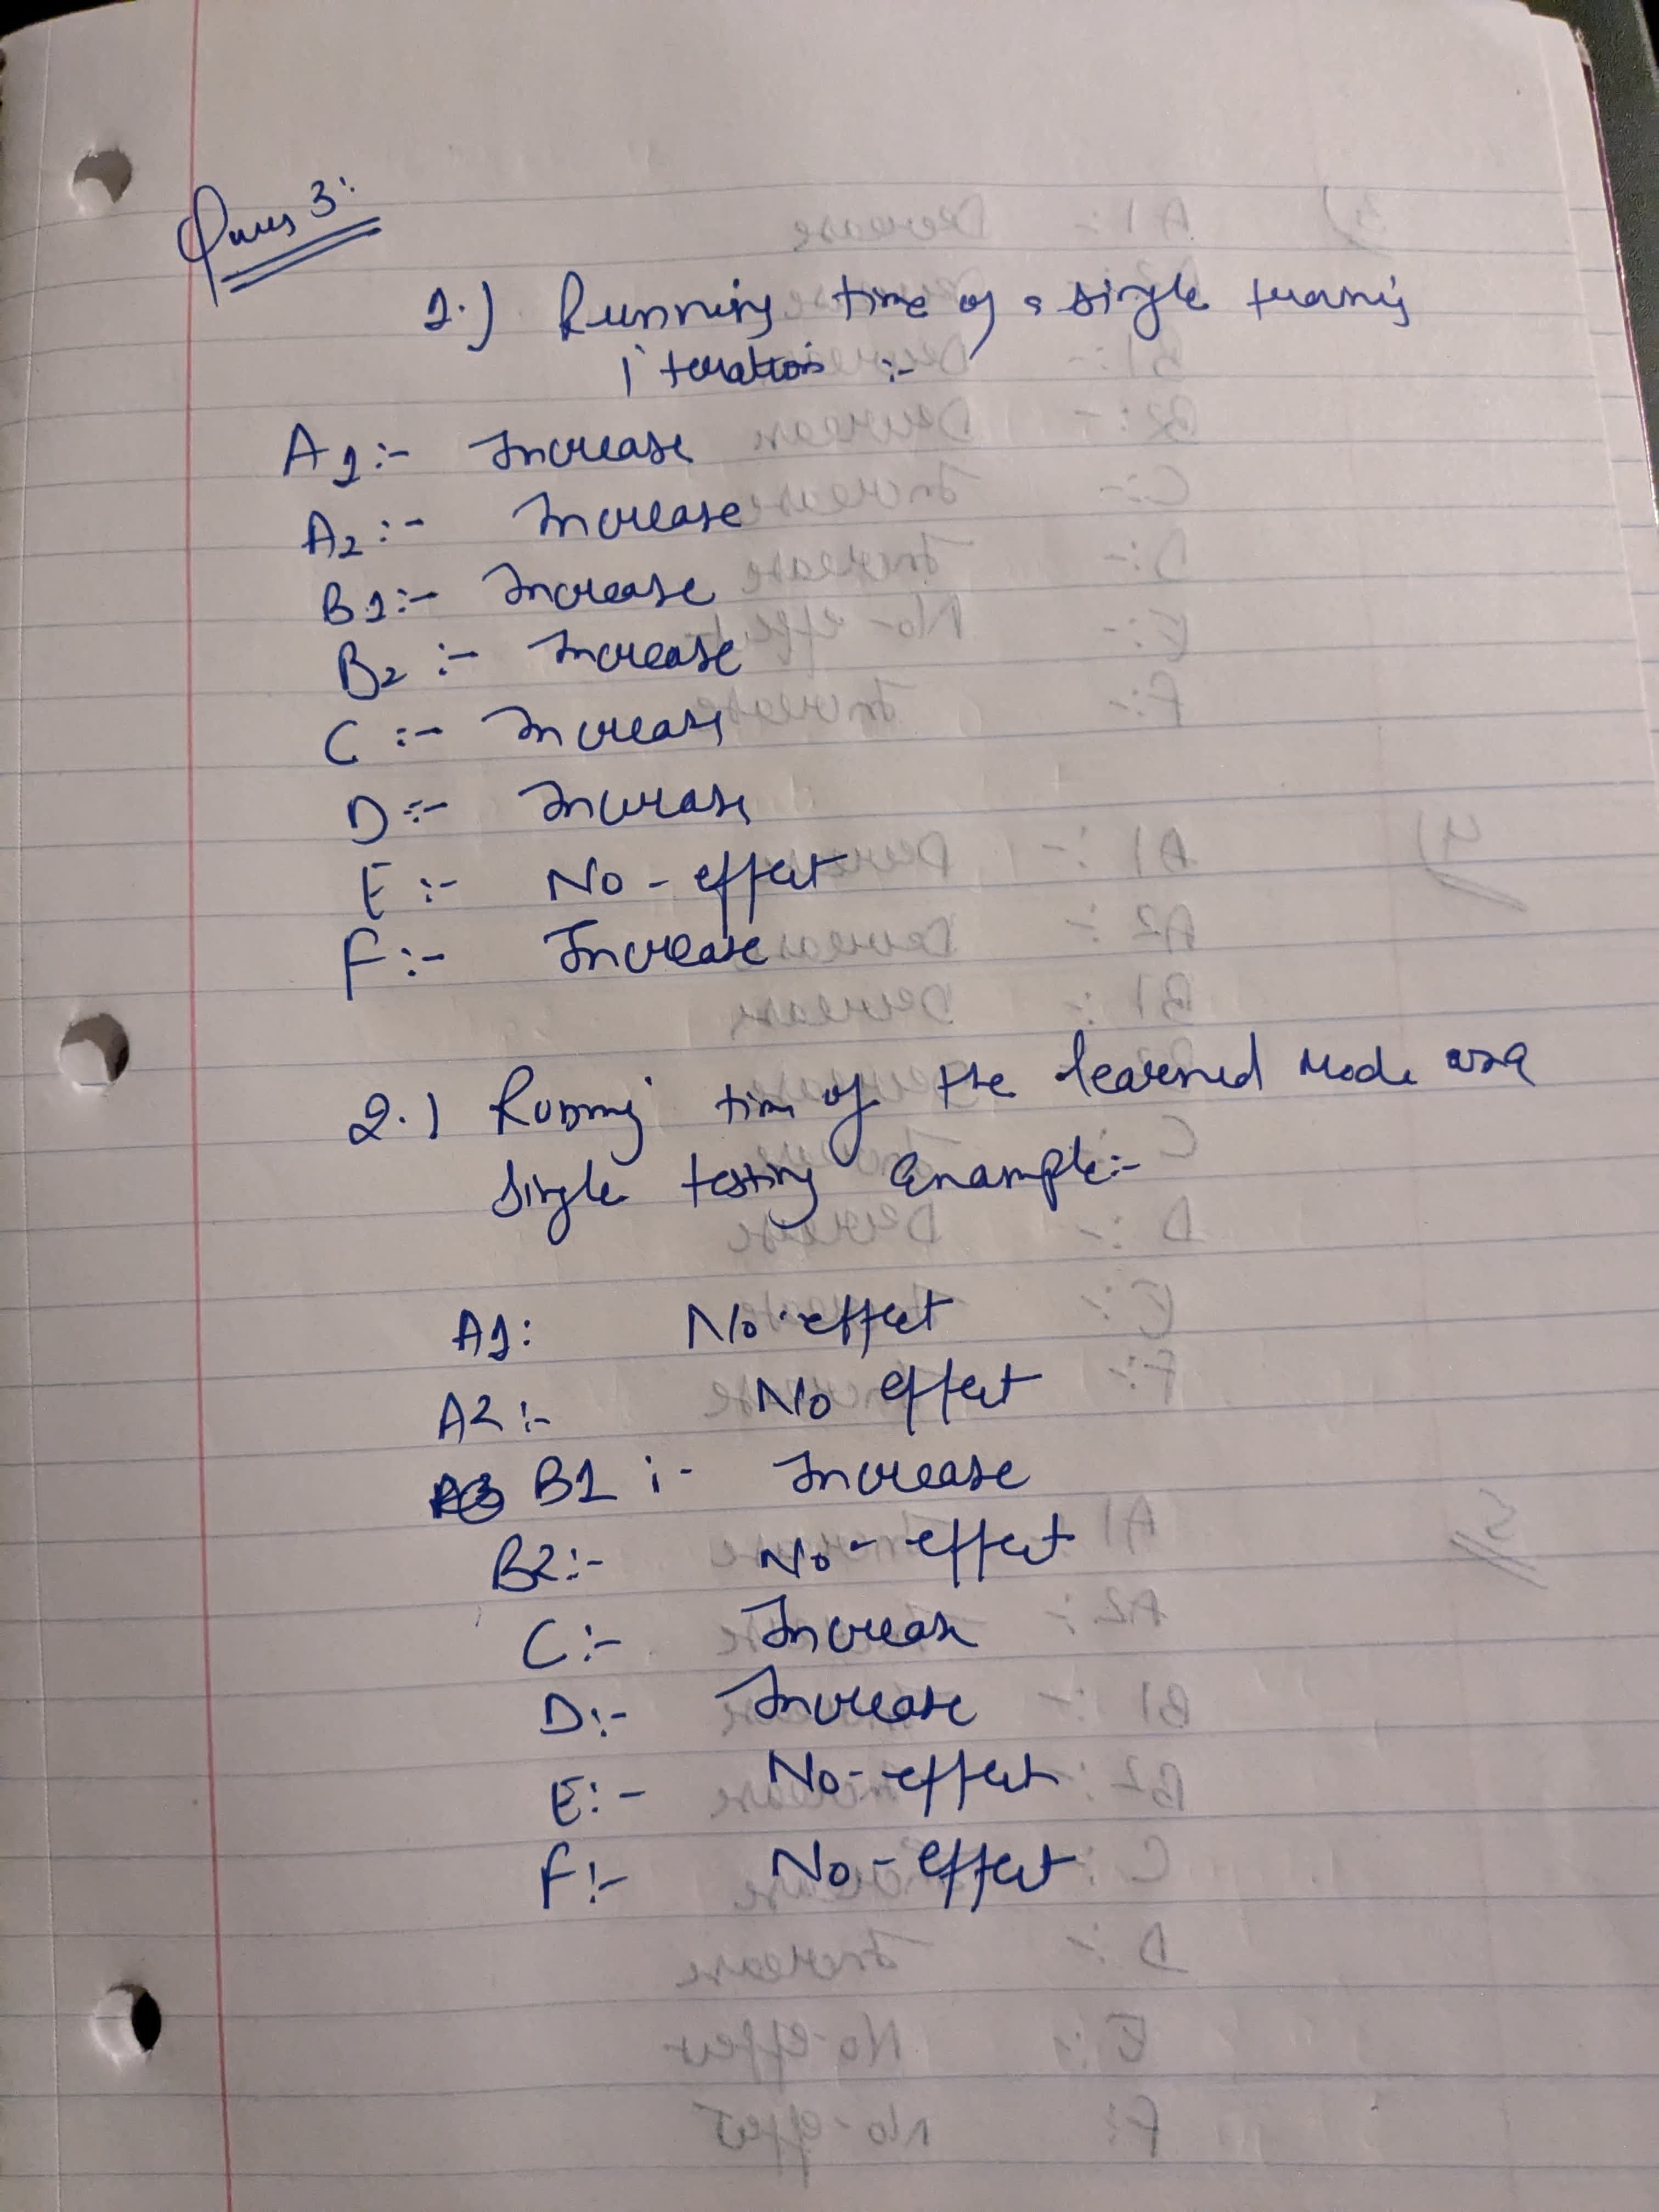 Ques 3:
1.) Running time of a single training
iteration :-
A1:- Increase
A2:- Increase
B1:- Increase
B2:- Increase
C:- Increase
D:- Increase
E:- No-effect
F:- Increase
2.) Running time of the learned Mode
single testing Example:-
A1: No-effect
A2:- No effect
B1:- Increase
B2:- No-effect
C:- Increase
D:- Increase
E:- No-effect
F:- No-effect